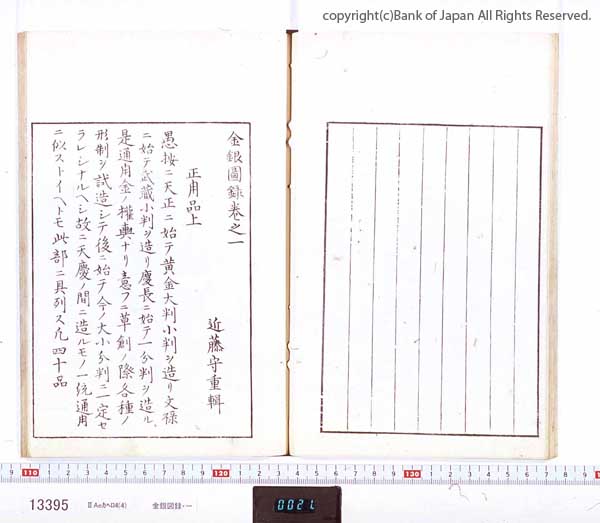 copyright(c)Bank of Japan All Rights Reserved.
金銀圖録巻之一
近藤守重輯
正用品上
愚按ニ天正ニ始テ黄金大判小判ヲ造リ文禄
ニ始テ武蔵小判ヲ造リ慶長ニ始テ一分判ヲ造ル
是通用金ノ權輿ナリ意フニ草創ノ際各種ノ
形制ヲ試造シテ後ニ始テ今ノ大小分判ニ一定セ
ラレシナルヘシ故ニ天慶ノ間ニ造ルモノ一統通用
ニ似ストイヘトモ此部ニ具列ス凡四十品
9 110 1 2 3 4 5 6 7 8 9 120 1 2 3 4 5 6 7 8 9 130 1 2 3 4 5 6 7 8 9
13395 ⅡAeカヘロ4(4) 金銀図録・一
0021